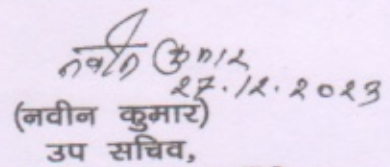 नवीन कुमार
27.12.2023
(नवीन कुमार)
उप सचिव,